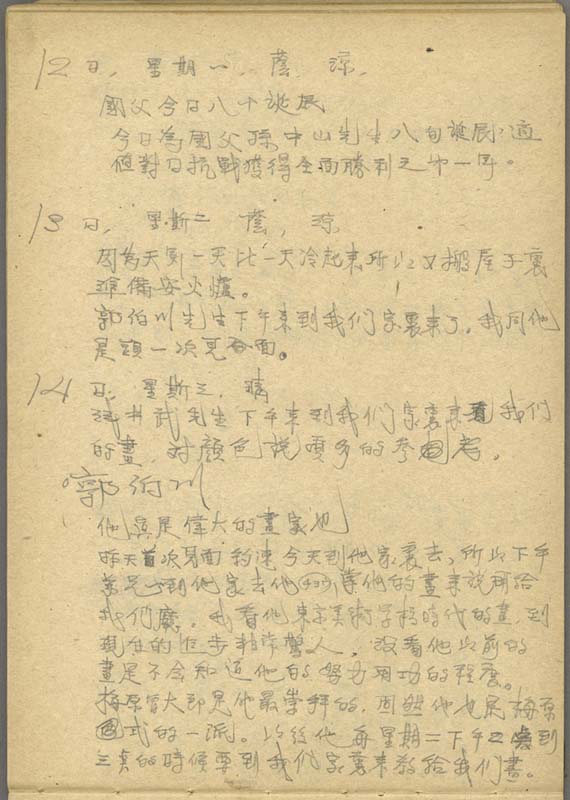 12日,星期一,蔭,涼,
國父今日八十誕辰
今日為國父孫中山先生八旬誕辰,適
值對日抗戰獲得全面勝利之第一年。
13日,星斯二 蔭,涼
因為天氣一天比一天冷起來所以又搬屋子裏
準備安火爐。
郭伯川先生下午來到我们家裏来了,我同他
是頭一次見面。
14日,星斯三,晴
先生下午来到我们家裏来看我们
的畫,对顏色說頂多的參考。
郭伯川
他真是偉大的畫家也
昨天首次見面約束今天到他家裏去,所以下午
到他家去他拿他的畫来說明給
我们聽。我看他東京美術学校時代的畫,到
現在的進步非常驚人,沒看他以前的
畫是不会知道他的努力用功的程度。
梅原 是他最崇拜的,固然他也屬梅原
式的一派。以後他每星期二下午2點到
三 的時候要到我们家裏来教給我们畫。